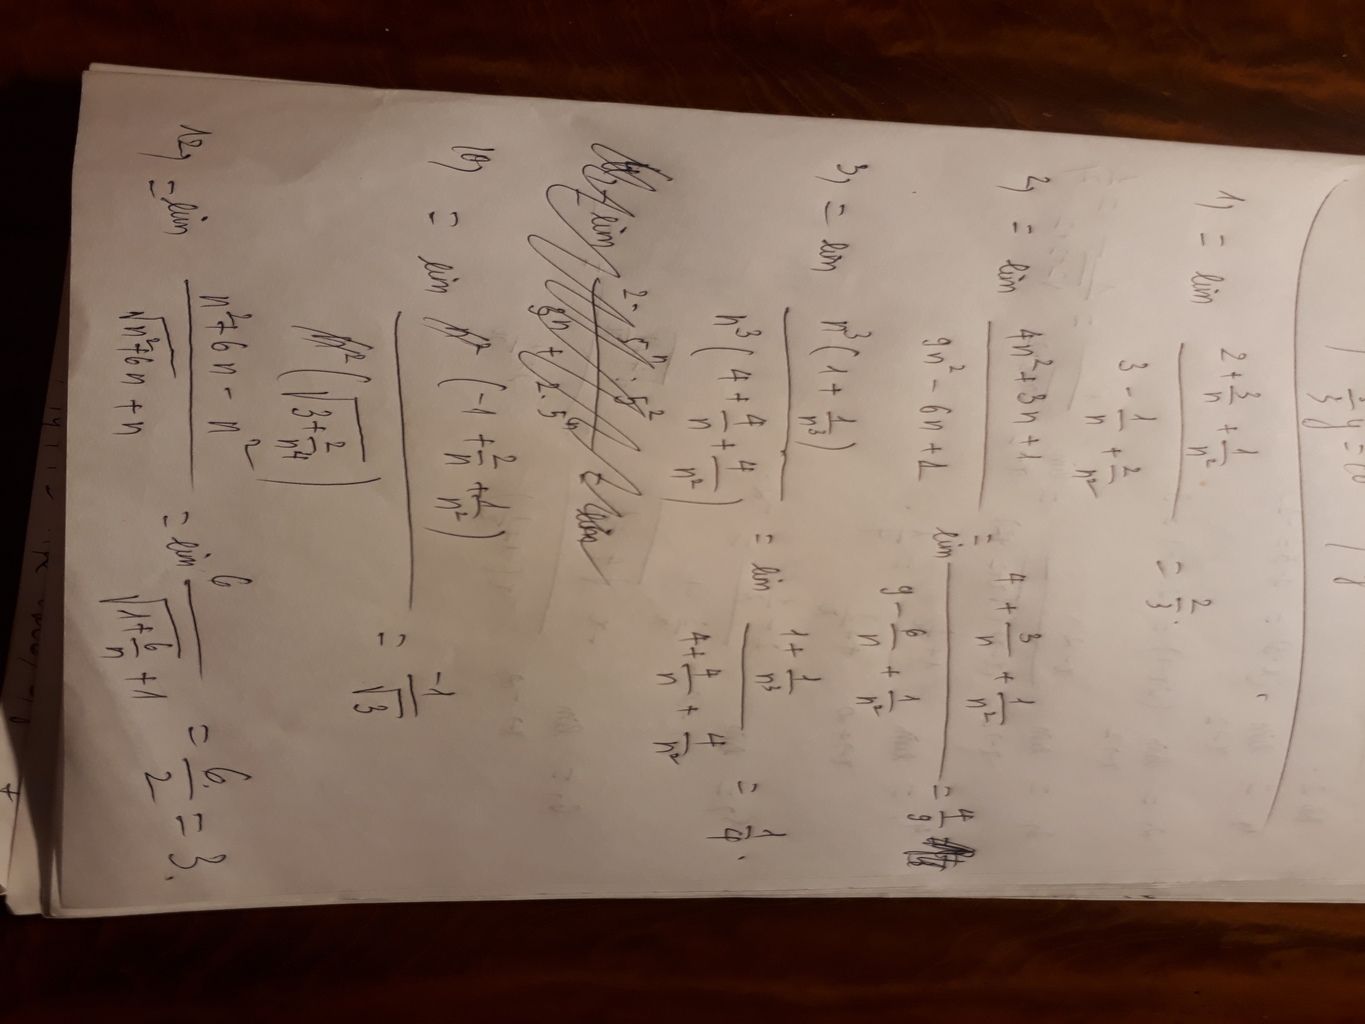 1) = lim (2 + 3/n + 1/n²) / (3 - 1/n + 2/n²) = 2/3.
2) = lim (4n² + 3n + 1) / (9n² - 6n + 1) = lim (4 + 3/n + 1/n²) / (9 - 6/n + 1/n²) = 4/9
3) = lim n³(1 + 1/n³) / n³(4 + 4/n + 4/n²) = lim (1 + 1/n³) / (4 + 4/n + 4/n²) = 1/4.
10) = lim n²(-1 + 2/n + 1/n²) / n²(√(3 + 2/n⁴)) = -1/√3
12) = lim (n² + 6n - n²) / (√(n² + 6n) + n) = lim 6 / (√(1 + 6/n) + 1) = 6/2 = 3.